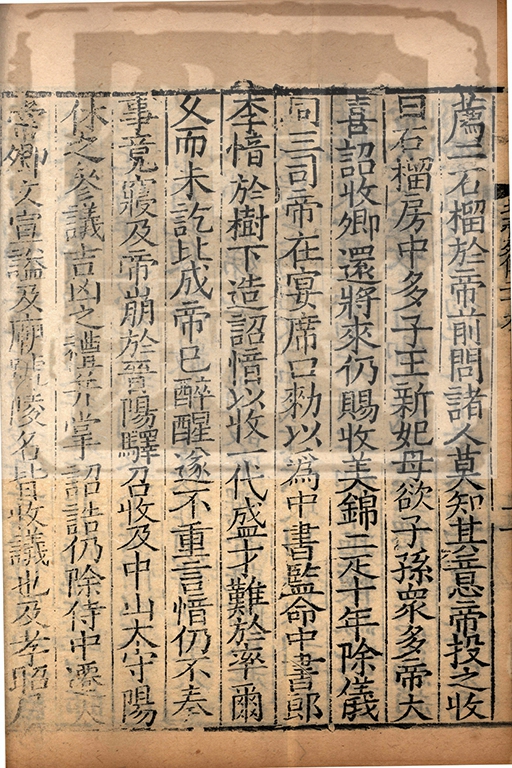 薦二石榴於帝前問諸人莫知其意帝投之收
曰石榴房中多子王新妃母欲子孫衆多帝大
喜詔收卿還將來仍賜收美錦二疋十年除儀
同三司帝在宴席口勑以爲中書監命中書郎
李愔於樹下造詔愔以收一代盛才難於率爾
久而未訖比成帝已醉醒遂不重言愔仍不奏
事竟寢及帝崩於晋陽驛召收及中山太守陽
休之參議吉凶之禮并掌詔誥仍除侍中遷太
常卿文宣謚及廟號陵名皆收議也及孝昭居